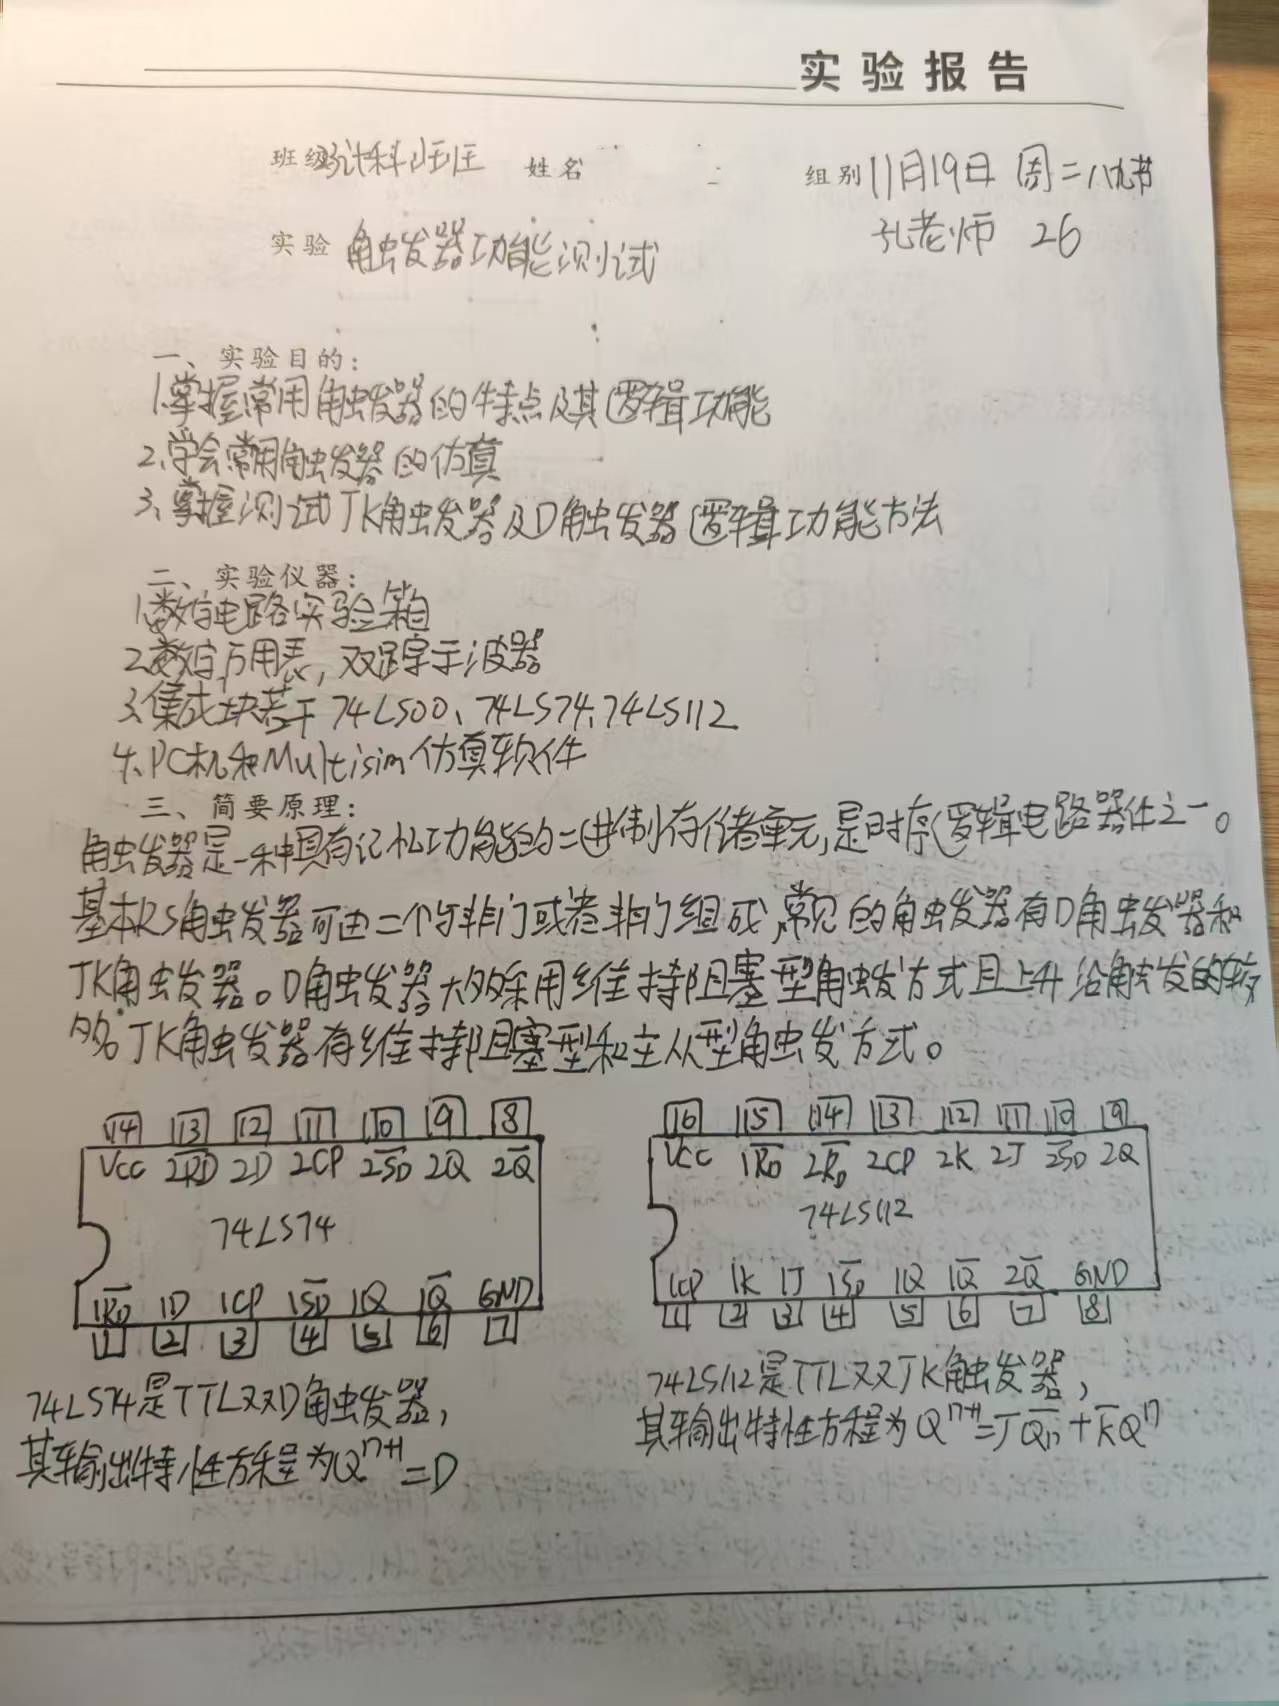 实验报告
班级 计科 姓名 组别 11月19日 周二 八九节
孔老师 26
实验 触发器功能测试
一、实验目的：
1.掌握常用触发器的特点及其逻辑功能
2.学会常用触发器的仿真
3、掌握测试JK触发器及D触发器逻辑功能方法
二、实验仪器：
1.数字电路实验箱
2.数字万用表，双踪示波器
3.集成块若干 74LS00、74LS74、74LS112
4.PC机和Multisim仿真软件
三、简要原理：
触发器是一种具有记忆功能的二进制存储单元，是时序逻辑电路器件之一。
基本RS触发器可由二个与非门或者非门组成，常见的触发器有D触发器和
JK触发器。D触发器大多采用维持阻塞型触发方式且上升沿触发的较
多。JK触发器有维持阻塞型和主从型触发方式。
14 13 12 11 10 9 8
Vcc 2R̅D̅ 2D 2CP 2S̅D̅ 2Q 2Q̅
74LS74
1R̅D̅ 1D 1CP 1S̅D̅ 1Q 1Q̅ GND
1 2 3 4 5 6 7
74LS74是TTL双D触发器，
其输出特性方程为Qⁿ⁺¹=D
16 15 14 13 12 11 10 9
VCC 1R̅D̅ 2R̅D̅ 2CP 2K 2J 2S̅D̅ 2Q
74LS112
1CP 1K 1J 1S̅D̅ 1Q 1Q̅ 2Q̅ GND
1 2 3 4 5 6 7 8
74LS112是TTL双JK触发器，
其输出特性方程为Qⁿ⁺¹=JQ̅n̅+K̅Qⁿ